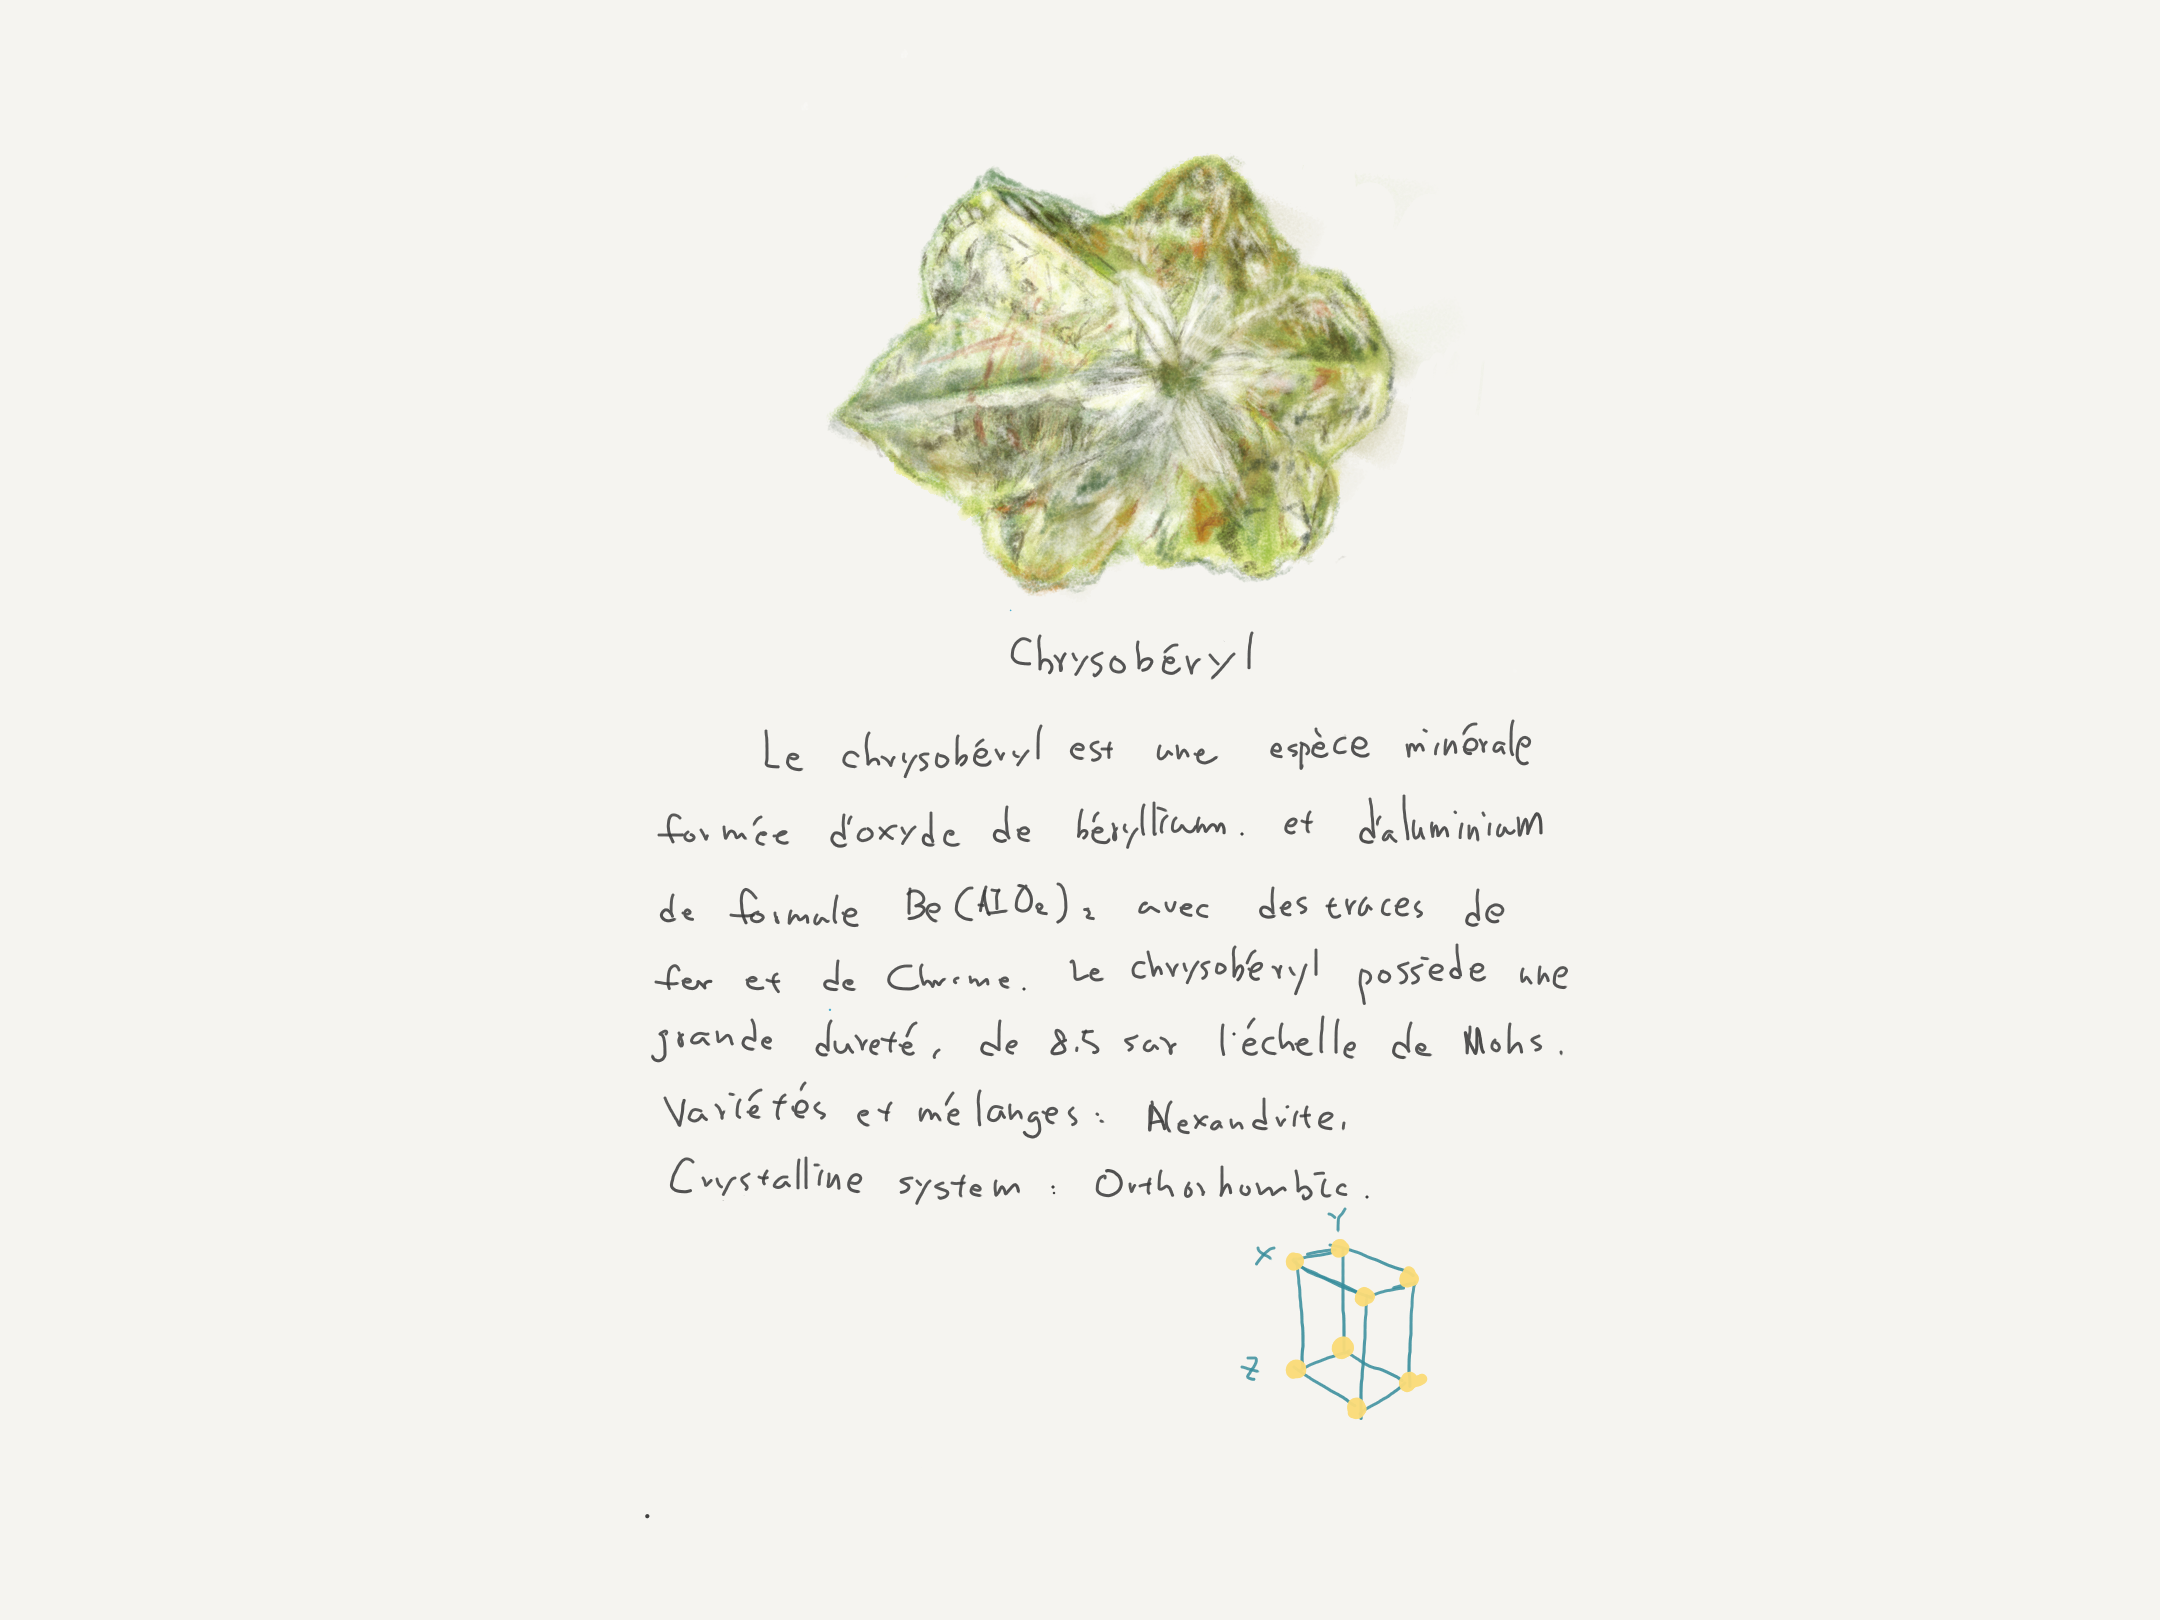 Chrysobéryl
Le chrysobéryl est une espèce minérale
formée d'oxyde de béryllium. et d'aluminium
de formule Be(AlO₂)₂ avec des traces de
fer et de Chrome. Le chrysobéryl possède une
grande dureté, de 8.5 sur l'échelle de Mohs.
Variétés et mélanges: Alexandrite,
Crystalline system : Orthorhombic.
Y
X
Z